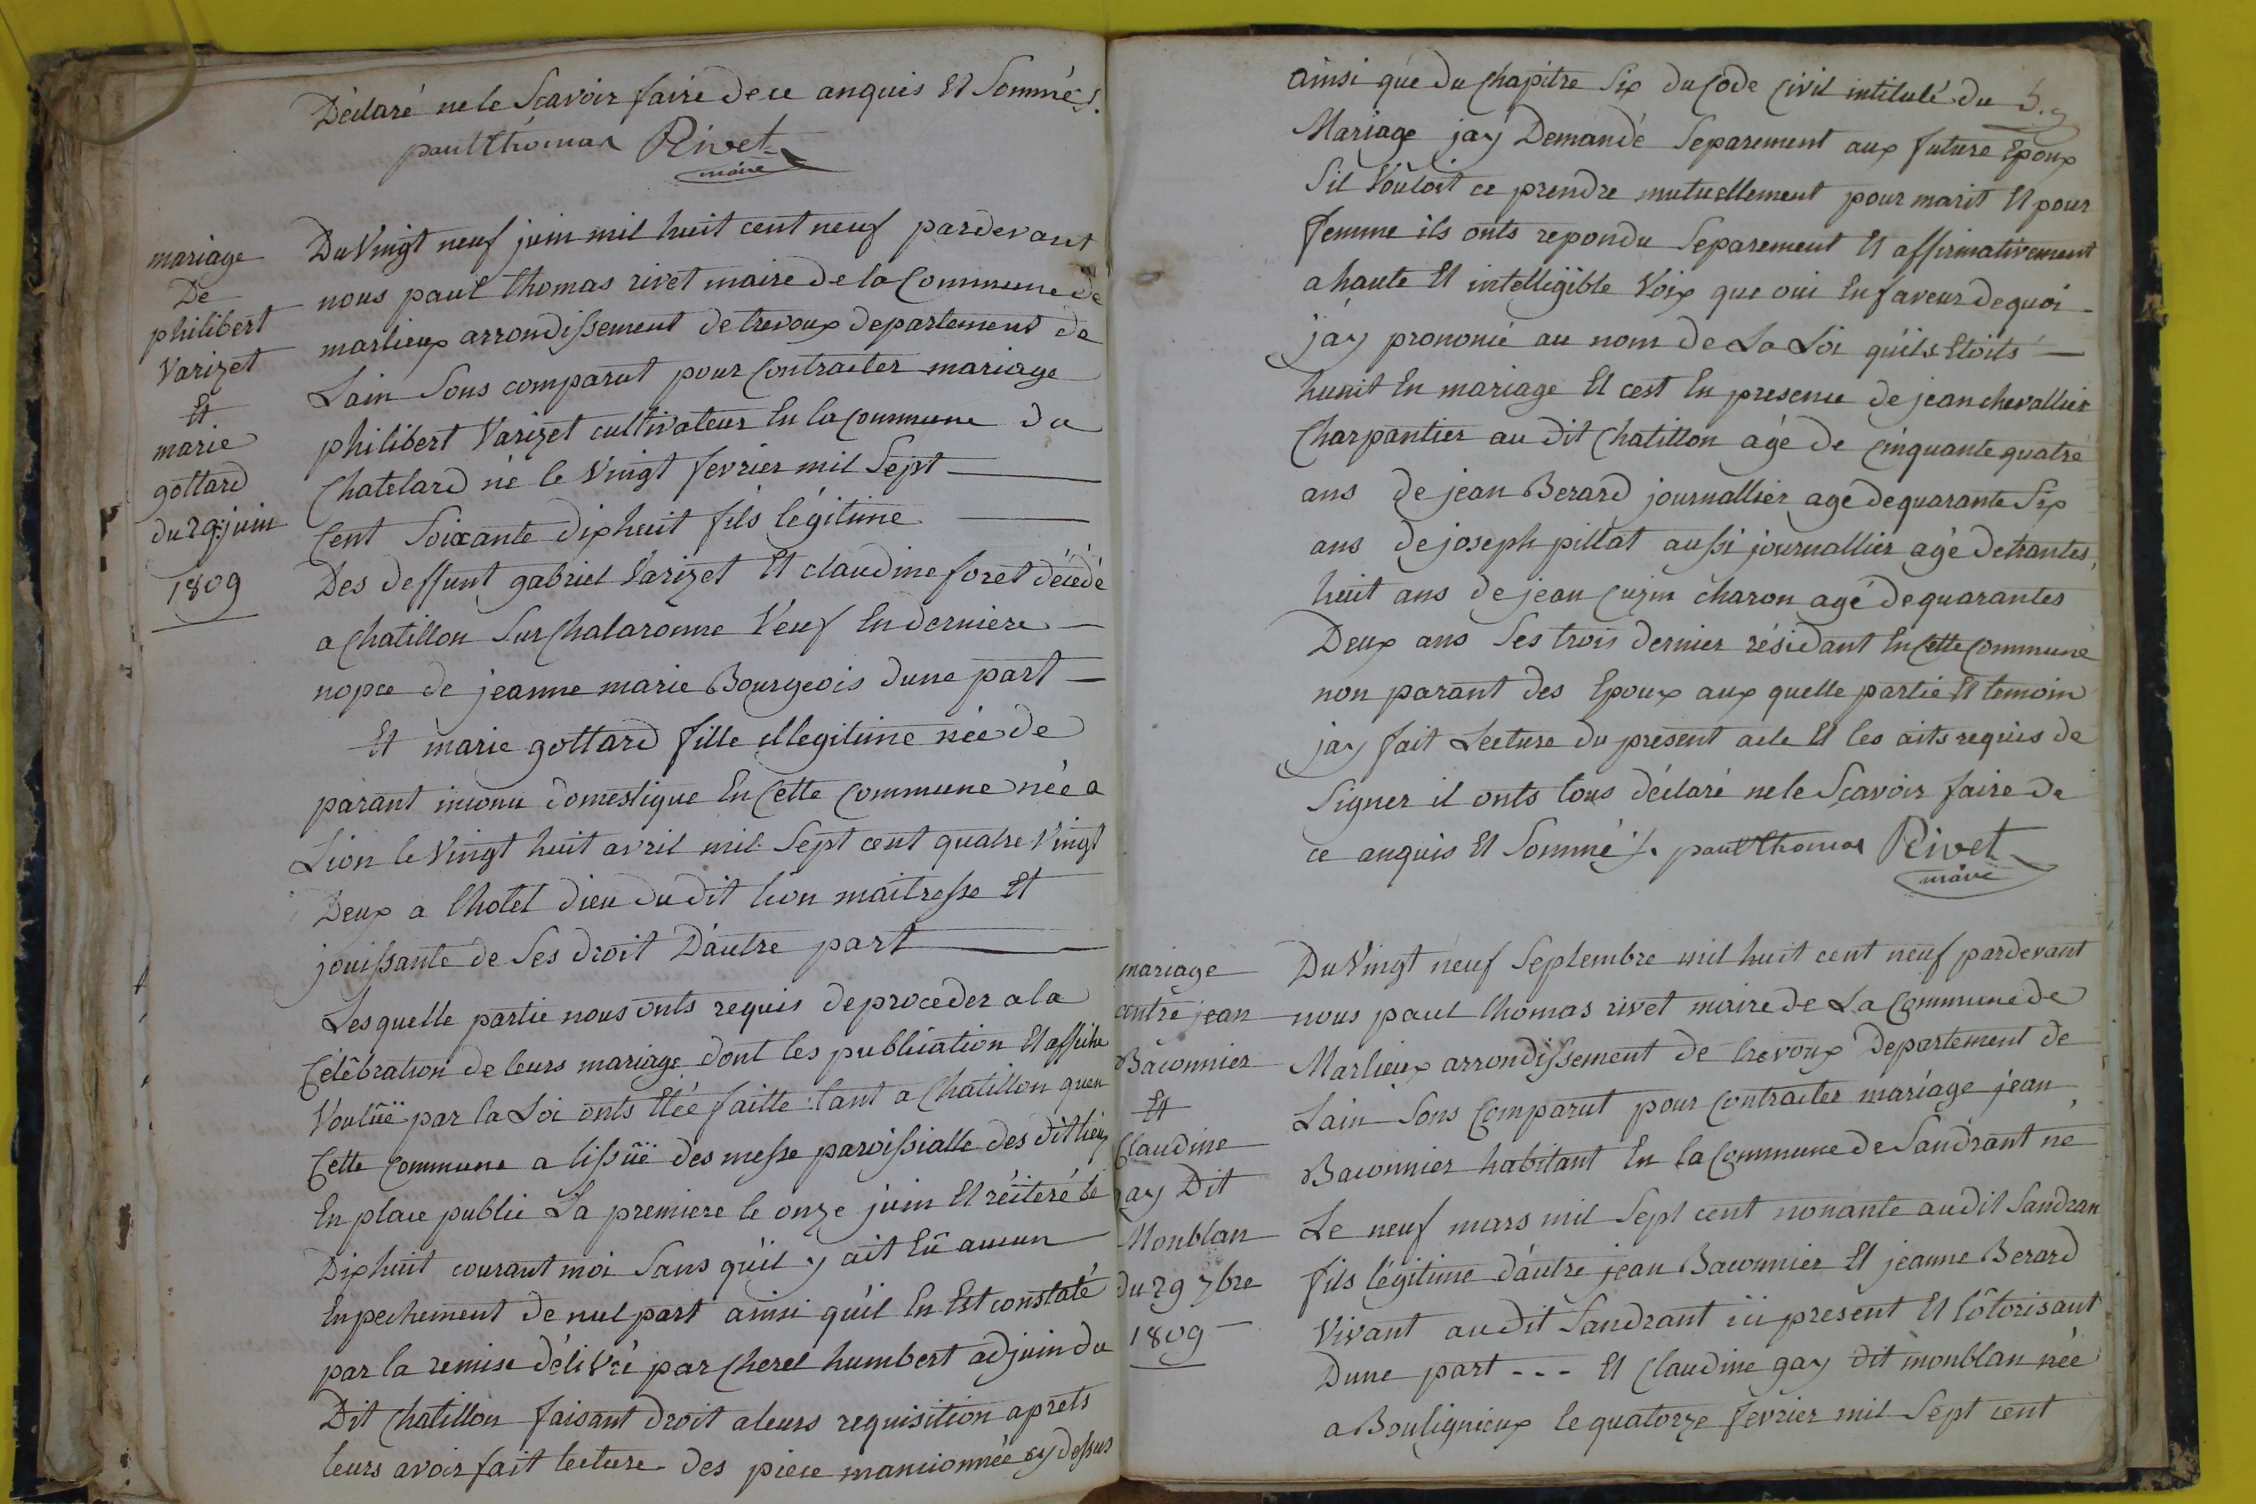 Déclaré ne le Scavoir faire de ce anquis Et Sommé ./.
paul thomas Rivet
maire
mariage
De
philibert
Varizet
Et
marie
gottard
du 29: juin
1809
Du Vingt neuf juin mil huit cent neuf pardevant
nous paul thomas rivet maire de la Commune de
marlieux arrondissement de trevoux departement de
Lain Sons comparut pour Contracter mariage
philibert Varizet cultivateur En la Commune du
Chatelard né le Vingt fevrier mil Sept
Cent Soixante dixhuit fils légitime
Des deffunt gabriel Varizet Et claudine foret décédé
a Chatillon Sur Chalaronne Veuf En derniere
nopce de jeanne marie Bourgeois dune part
Et marie gottard fille illegitime née de
parant inconu domestique En Cette Commune née a
Lion le Vingt huit avril mil Sept cent quatre Vingt
Deux a lhotel dieu du dit lion maitresse Et
jouissante de Ses droit D'autre part
Lesquelle partie nous onts requis de proceder a la
Célébration de leurs mariage dont les publication Et affiche
Voulüe par la Loi onts Etéé faitte tant a Chatillon quen
Cette Commune a lissüe des messe paroissialle des dit lieu
En place public La premiere le onze juin Et réiteré le
Dixhuit courant moi Sans qu'il y ait Eü aucun
Enpechement de nul part ainsi qu'il En Est constaté
par la remise délivré par Cherel humbert adjoin du
Dit Chatillon faisant droit a leurs requisition aprets
leurs avoir fait lecture des piece mancionnée cy dessus
ainsi que du Chapitre Six du Code Civil intitulé du
Mariage jay Demandé Separement aux future Epoux
Sil Vouloit ce prendre mutuellement pour marit Et pour
femme ils onts repondu Separement Et affirmativement
a haute Et intelligible Voix que oui En faveur de quoi
jay prononcé au nom de La Loi qu'ils Etoits
hunit En mariage Et cest En presence de jean chevallier
Charpantier au dit Chatillon agé de Cinquante quatre
ans de jean Berard journallier agé de quarante Six
ans de joseph pillat aussi journallier agé de trantes
huit ans de jean Cuzin charon agé de quarantes
Deux ans Ses trois dernier résidant En Cette Commune
non parant des Epoux aux quelle partie Et temoin
jay fait Lecture du présent acte Et les aits requis de
Signer il onts tous déclaré ne le Scavoir faire de
ce anquis Et Sommé ./. paul thomas Rivet
maire
mariage
entre jean
Baconnier
Et
Claudine
gay Dit
Monblan
du 29 7bre
1809
Du Vingt neuf Septembre mil huit cent neuf pardevant
nous paul thomas rivet maire de La Commune de
Marlieux arrondissement de trevoux Departement de
Lain Sons Comparut pour Contracter mariage jean
Baconnier habitant En la Commune de Sandrant né
Le neuf mars mil Sept cent nonante au dit Sandran
fils légitime d'autre jean Baconnier Et jeanne Berard
Vivant au dit Sandrant ici présent Et lôtorisant
Dune part - - - Et Claudine gay dit monblan née
a Bouligneux le quatorze fevrier mil Sept cent